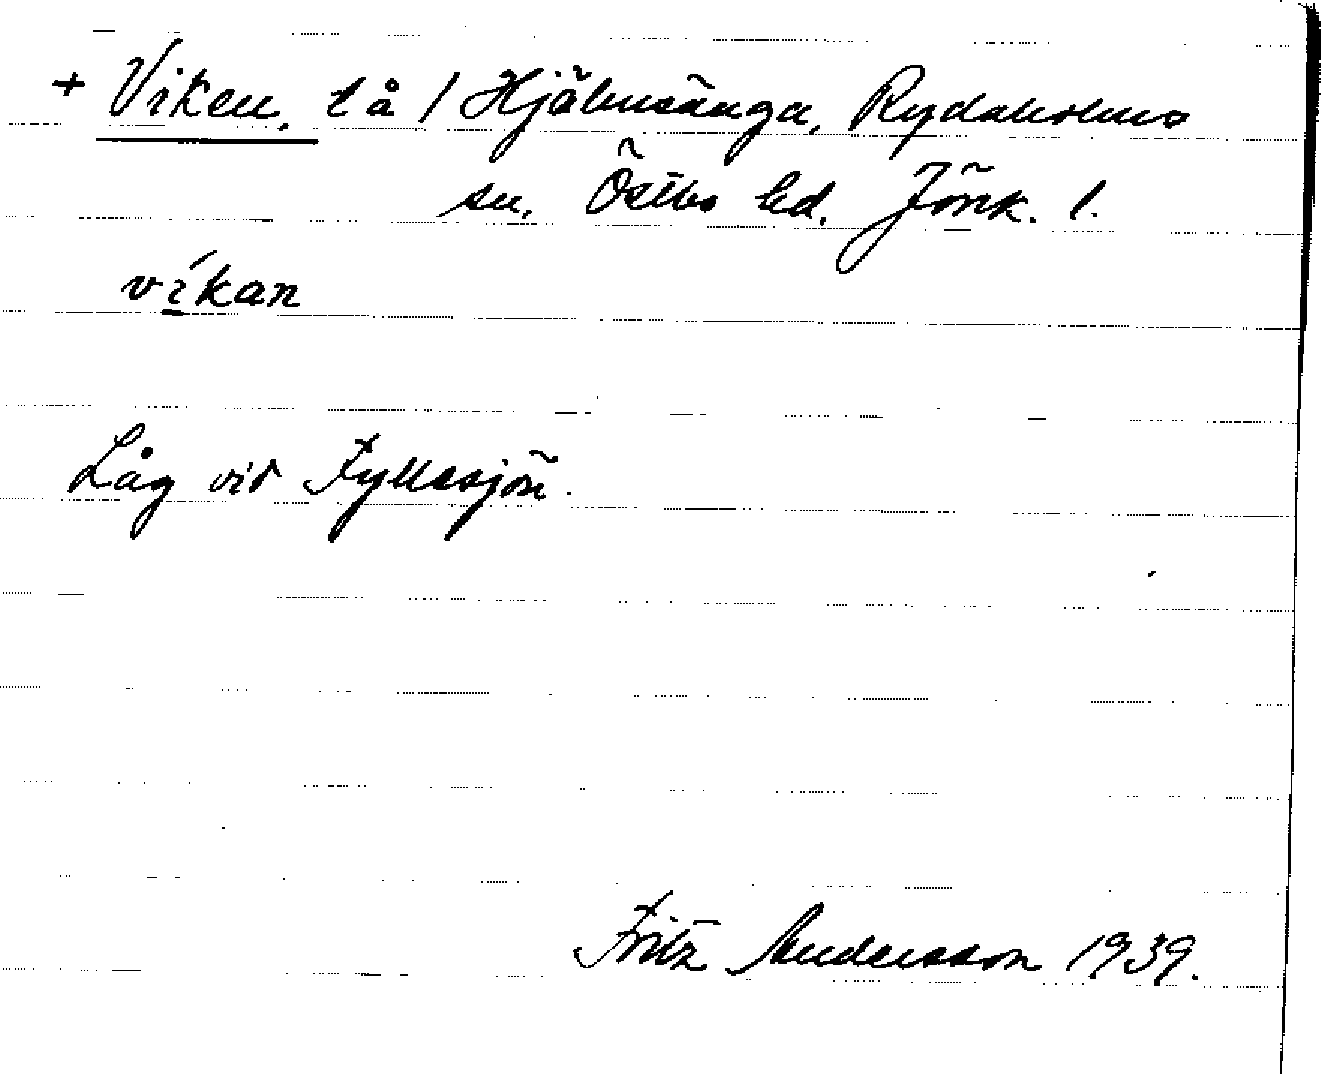 + Viken, t å / Hjälmsänga, Rydaholms
sn, Östbo hd. Jönk. l.
víkan
Låg vid Fyllesjön.
Fritz Andersson 1939.